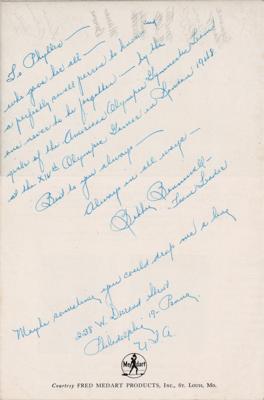 To Phyllis —
who gave her all —
a perfectly swell person to know and
one never to be forgotten — by the
girls of the American Olympic Gymnastic Team
at the XIVth Olympic Games in London 1948
Best to you always —
Always in all ways —
Team Leader
Maybe sometime you could drop me a line
238 W. Street
Philadelphia 19 - Penna.
U.S.A.
Medart
Courtesy FRED MEDART PRODUCTS, INC., ST. LOUIS, MO.